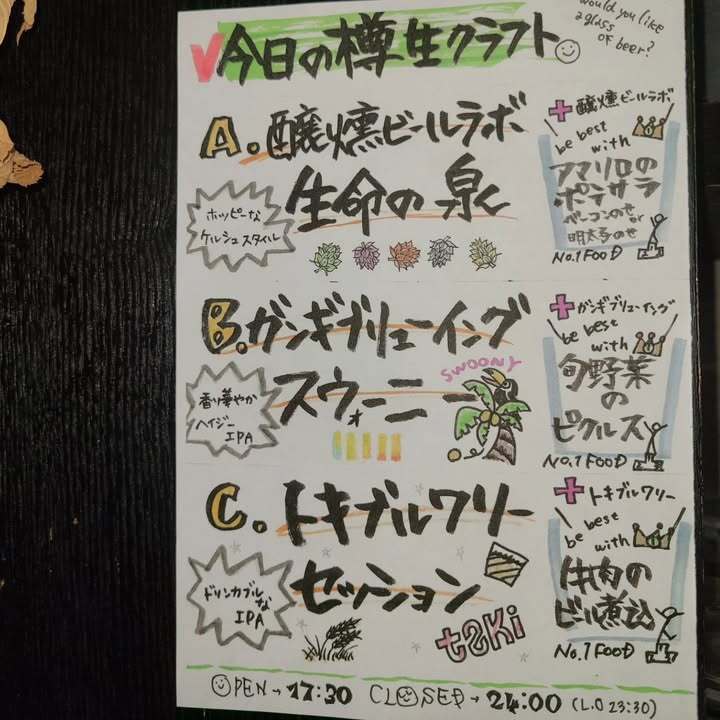 would you like
a glass
of beer?
今日の樽生クラフト
A. 醸燻ビールラボ
生命の泉
ホッピーな
ケルシュスタイル
+醸燻ビールラボ
be best
with
アマリロの
ポテサラ
ベーコンのせ or
明太子のせ
No.1 FOOD
B. ガシギブリューイング
スウォーニー
SWOONY
香り華やか
ヘイジー
IPA
+ガシギブリューイング
be best
with
旬野菜
の
ピクルス
No.1 FOOD
C. トキブルワリー
セッション
ドリンカブル
な
IPA
t2Ki
+トキブルワリー
be best
with
牛肉の
ビール煮込
No.1 FOOD
OPEN→17:30 CLOSED→24:00 (L.O 23:30)